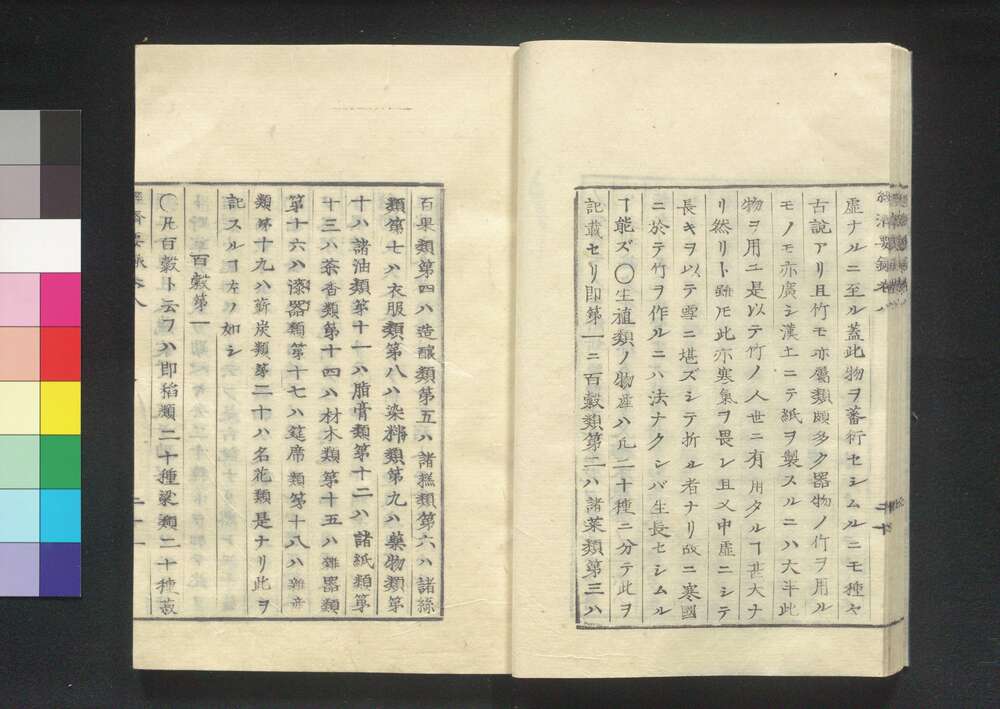 虚ナルニ至ル蓋此物ヲ蓄衍セシムルニモ種々
古説アリ且竹モ亦屬類頗多ク器物ノ竹ヲ用ル
モノモ亦廣シ漢土ニテ紙ヲ製スルニハ大斗此
物ヲ用ユ是以テ竹ノ人世ニ有用タルヿ甚大ナ
リ然リト雖𪜈此亦寒氣ヲ畏レ且又中虚ニシテ
長キヲ以テ雪ニ堪ズシテ折ル者ナリ故ニ寒國
ニ於テ竹ヲ作ルニハ法ナクンバ生長セシムル
ヿ能ズ〇生植類ノ物産ハ凡二十種ニ分テ此ヲ
記載セリ即第一ニ百穀類第二ハ諸菜類第三ハ
百果類第四ハ造釀類第五ハ諸糕類第六ハ諸絲
類第七ハ衣服類第八ハ染料類第九ハ藥物類第
十ハ諸油類第十一ハ脂膏類第十二ハ諸紙類第
十三ハ茶香類第十四ハ材木類第十五ハ雜器類
第十六ハ漆器類第十七ハ筵席類第十八ハ雜
類第十九ハ薪炭類第二十ハ名花類是ナリ此ヲ
記スルヿ左ノ如シ
百穀第一
〇凡百穀ト云フハ即稻類二十種粱類二十種菽
二十一